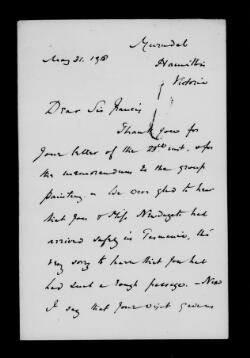 Murndal
Hamilton
Victoria
May 31. 19
Dear Sir Francis
Thank you for
your letter of the 28th inst. & for
the memorandum to the group
painting. We were glad to hear
that you & Miss Newdegate had
arrived safely in Tasmania, tho'
very sorry to hear that you had
had such a rough passage. Need
I say that your visit